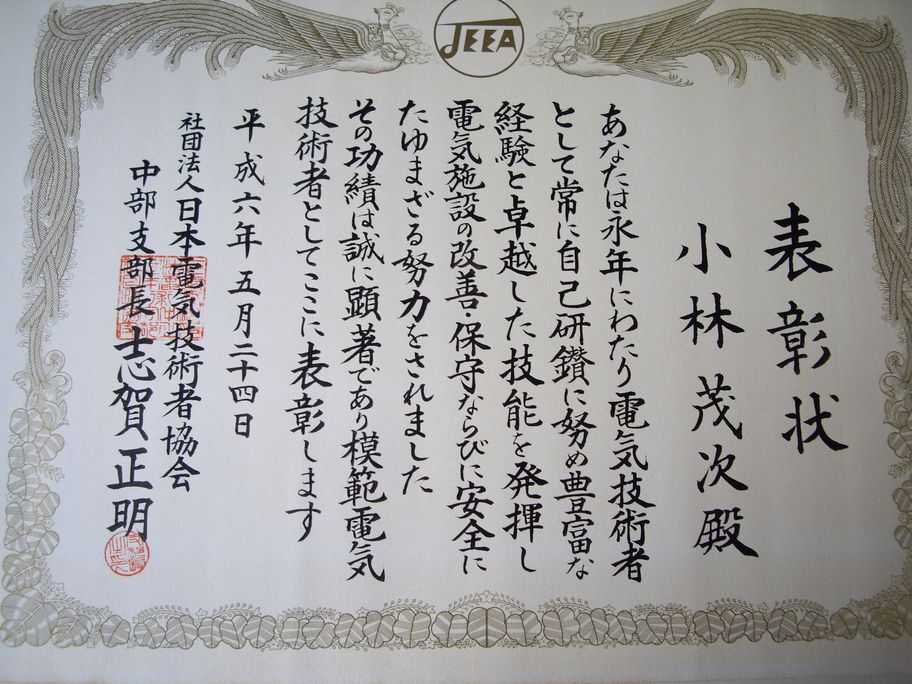 JEEA
表彰状
小林茂次殿
あなたは永年にわたり電気技術者
として常に自己研鑽に努め豊富な
経験と卓越した技能を発揮し
電気施設の改善・保守ならびに安全に
たゆまざる努力をされました
その功績は誠に顕著であり模範電気
技術者としてここに表彰します
平成六年五月二十四日
社団法人日本電気技術者協会
中部支部長 志賀正明